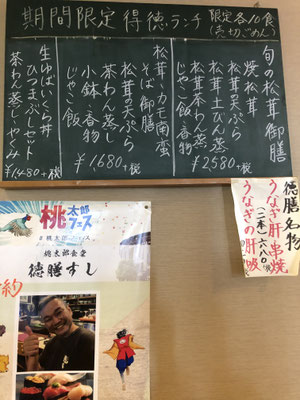 期間限定 得徳ランチ
限定各10食
(売切ごめん)
旬の松茸御膳
焼松茸
松茸の天ぷら
松茸土びん蒸し
松茸茶わん蒸し
じゃこ飯、香物
¥2580+税
松茸とカモ南蛮
そば御膳
松茸の天ぷら
茶わん蒸し
小鉢、香物
じゃこ飯
¥1680+税
生ゆばいくら丼
ひつまぶしセット
茶わん蒸し、やくみ
¥1480+税
徳膳名物
うなぎ肝串焼
(二本)六八〇
うなぎの肝吸
桃太郎フェス
桃太郎食堂
徳膳すし
約